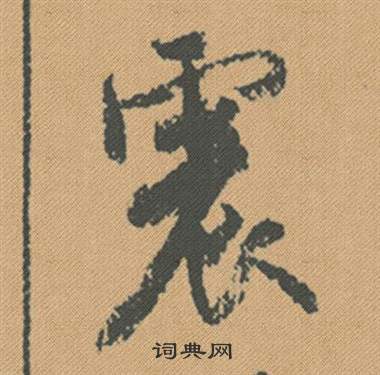 震
词典网